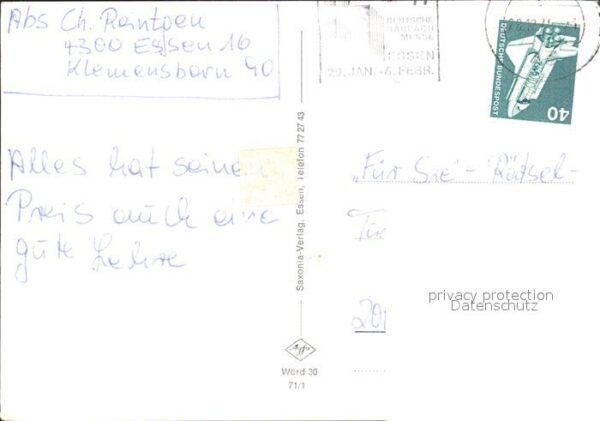 Abs Ch. Rantzen
4300 Essen 16
Klemensborn 40
DEUTSCHE
MESSE
ESSEN
29. JAN. -6. FEBR.
DEUTSCHE BUNDESPOST
40
Alles hat seine
Preis auch eine
gute Lehre
Saxonia-Verlag, Essen, Telefon 77 27 43
Agfa
Werd 30
71/1
„Für Sie"-Rätsel-
privacy protection
Datenschutz